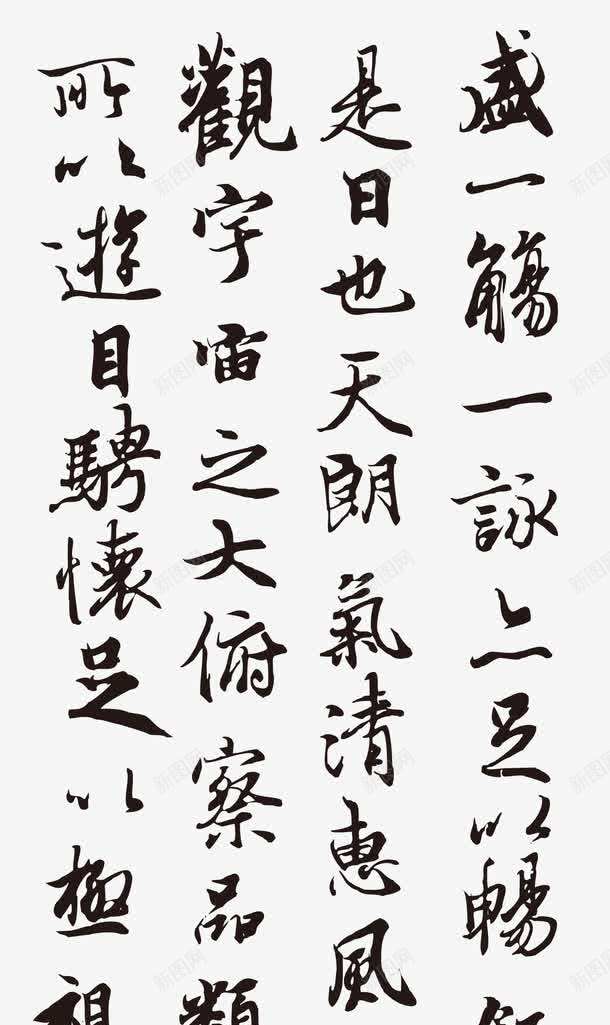 盛一觴一詠亦足以暢叙
是日也天朗氣清惠風
觀宇宙之大俯察品類
所以遊目騁懷足以極視
新图网